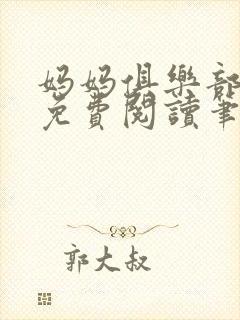 妈妈俱樂部
免費閱讀筆
郭大叔